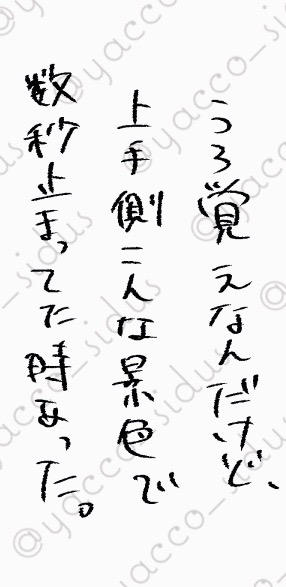 うろ覚えなんだけど、
上手側こんな景色で
数秒止まってた時あった。
@yacco_sidus